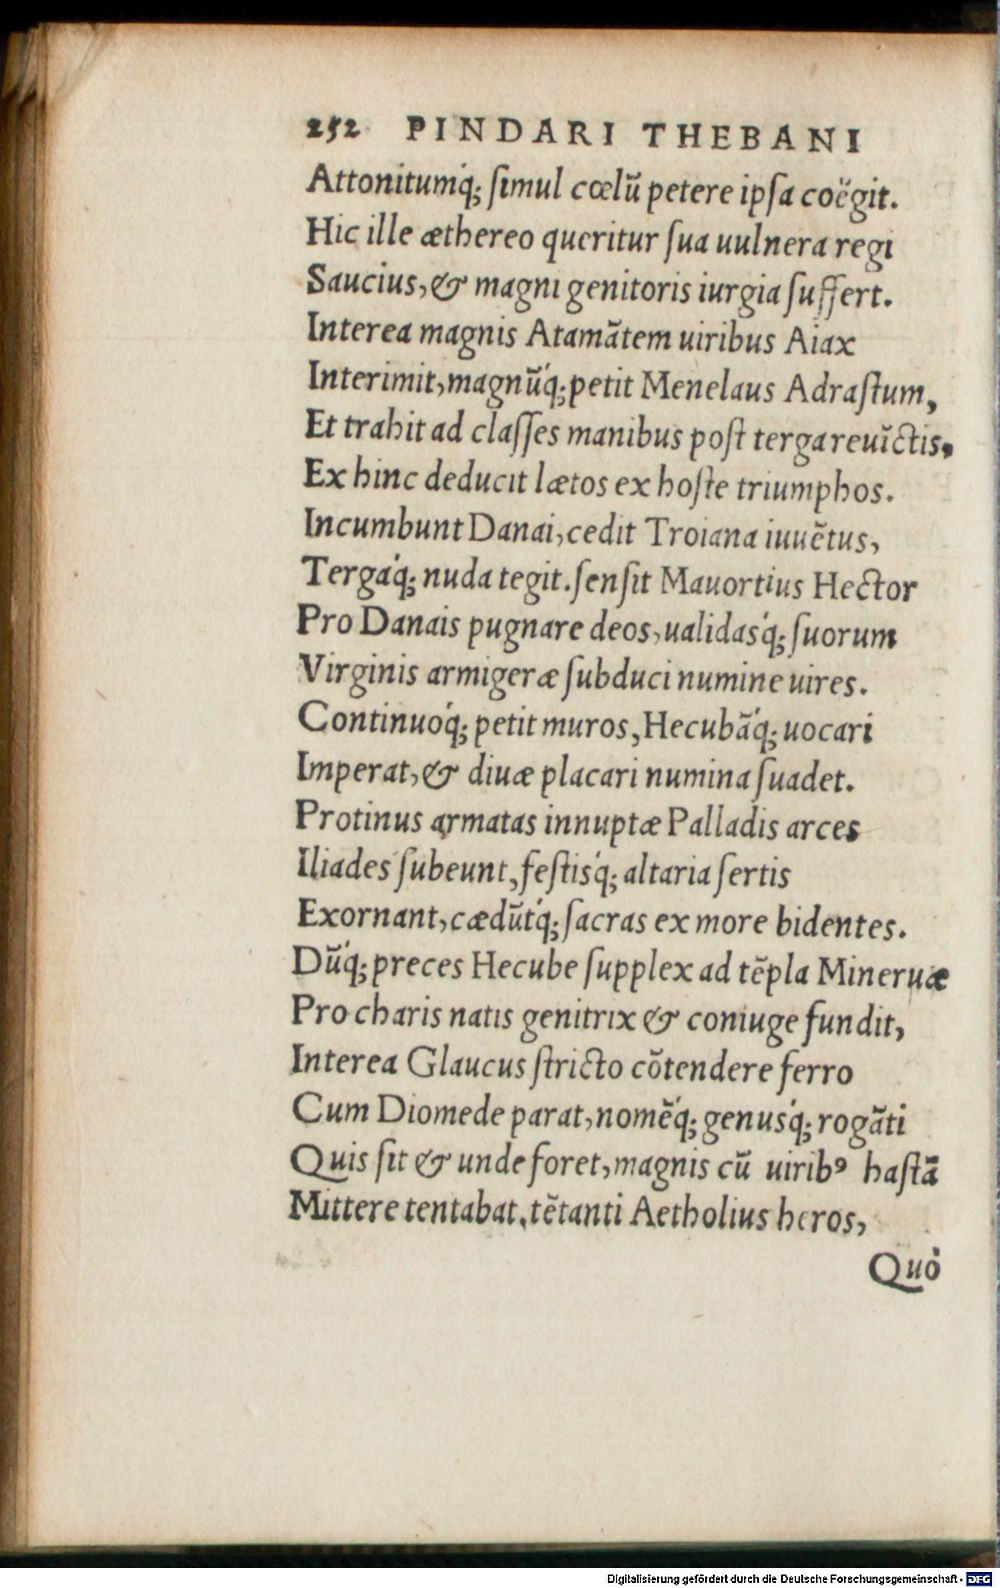 252 PINDARI THEBANI
Attonitumq́; ſimul cœlũ petere ipſa coëgit.
Hic ille æthereo queritur ſua uulnera regi
Saucius, & magni genitoris iurgia ſuffert.
Interea magnis Atamãtem uiribus Aiax
Interimit, magnũq́; petit Menelaus Adraſtum,
Et trahit ad claſſes manibus poſt terga reuĩctis,
Ex hinc deducit lætos ex hoſte triumphos.
Incumbunt Danai, cedit Troiana iuuẽtus,
Tergaq́; nuda tegit. ſenſit Mauortius Hector
Pro Danais pugnare deos, ualidasq́; ſuorum
Virginis armigeræ ſubduci numine uires.
Continuoq́; petit muros, Hecubãq́; uocari
Imperat, & diuæ placari numina ſuadet.
Protinus armatas innuptæ Palladis arces
Iliades ſubeunt, feſtisq́; altaria ſertis
Exornant, cædũtq́; ſacras ex more bidentes.
Dũq́; preces Hecube ſupplex ad tẽpla Mineruæ
Pro charis natis genitrix & coniuge fundit,
Interea Glaucus ſtricto cõtendere ferro
Cum Diomede parat, nomẽq́; genusq́; rogãti
Quis ſit & unde foret, magnis cũ uirib⁹ haſtã
Mittere tentabat, tẽtanti Aetholius heros,
Quò
Digitalisierung gefördert durch die Deutsche Forschungsgemeinschaft - DFG